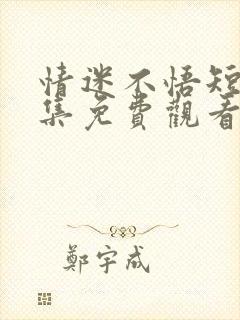 情迷不悟短
集免費觀看
鄭宇成